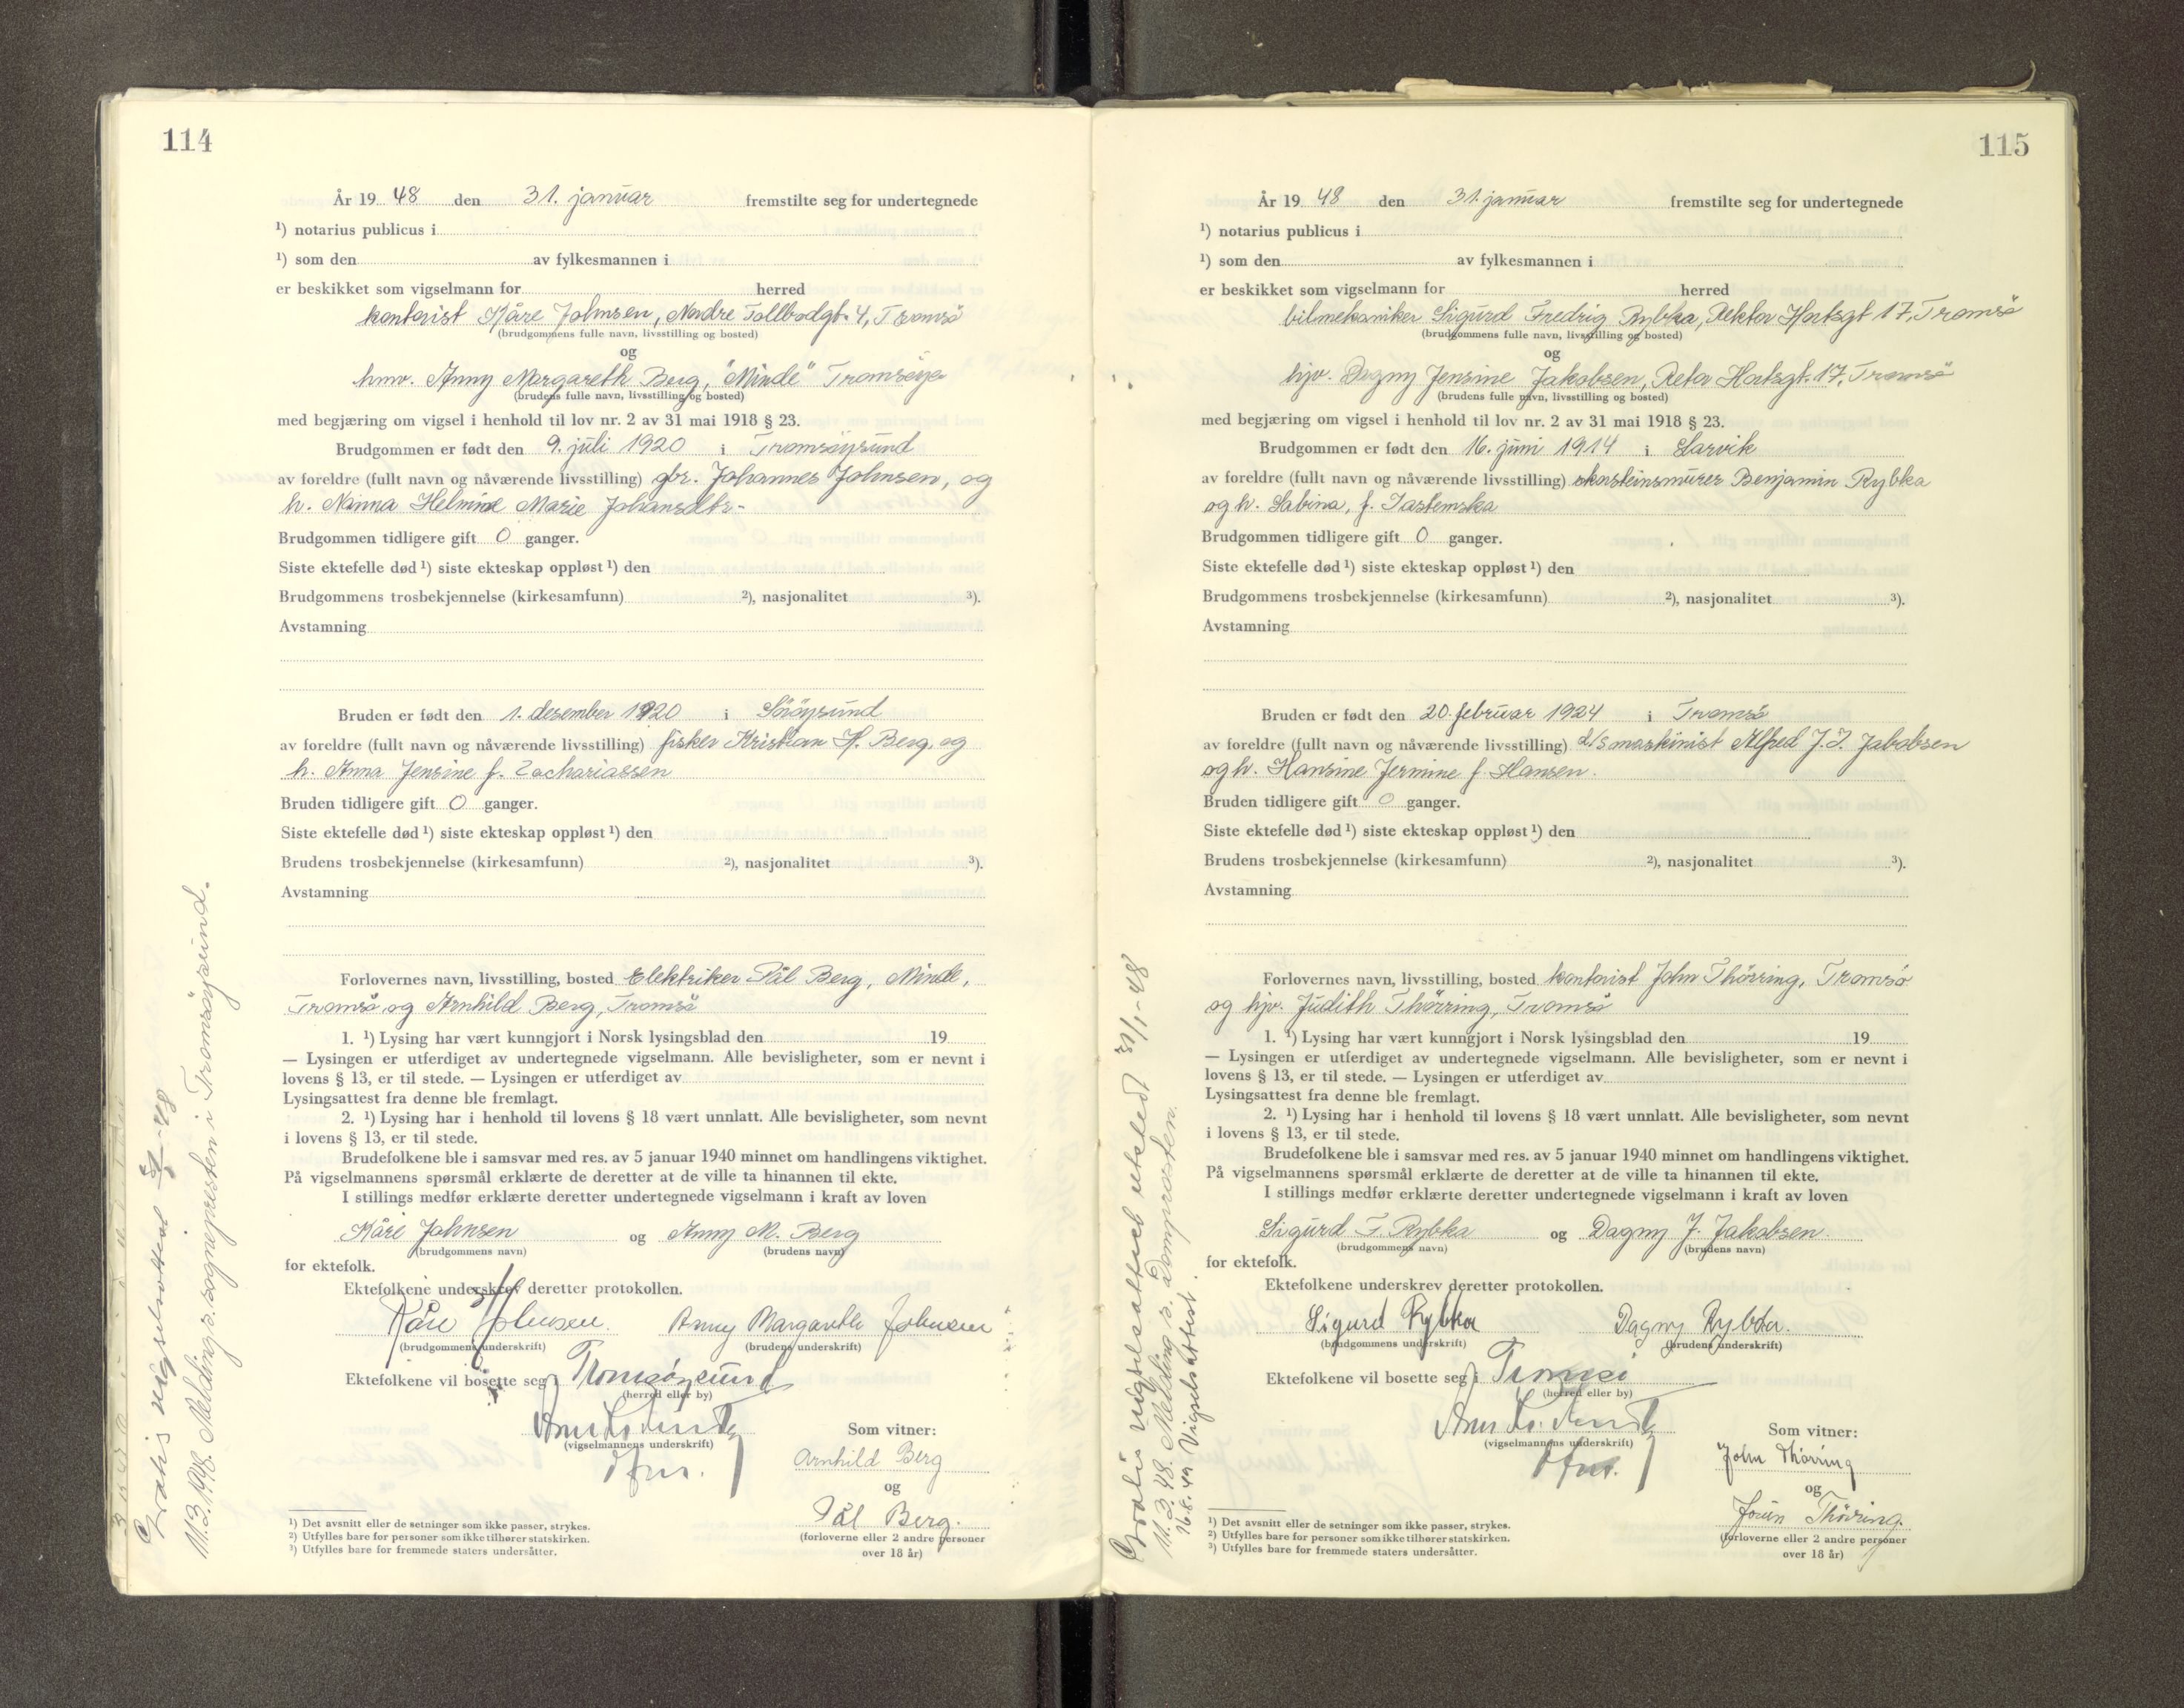 114
År 19 48 den 31. januar fremstilte seg for undertegnede
¹) notarius publicus i
¹) som den av fylkesmannen i
er beskikket som vigselmann for herred
kontorist Kåre Johnsen, Nordre Tollbodgt. 4, Tromsö
(brudgommens fulle navn, livsstilling og bosted)
og
hmv. Anny Margareth Berg, "Minde" Tromsöya
(brudens fulle navn, livsstilling og bosted)
med begjæring om vigsel i henhold til lov nr. 2 av 31 mai 1918 § 23.
Brudgommen er født den 9. juli 1920 i Tromsöysund
av foreldre (fullt navn og nåværende livsstilling) gbr. Johannes Johnsen, og
h. Nanna Helmine Marie Johansdtr.
Brudgommen tidligere gift 0 ganger.
Siste ektefelle død ¹) siste ekteskap oppløst ¹) den
Brudgommens trosbekjennelse (kirkesamfunn) ²), nasjonalitet ³).
Avstamning
Bruden er født den 1. desember 1920 i Söröysund
av foreldre (fullt navn og nåværende livsstilling) fisker Kristian H. Berg, og
h. Anna Jensine f. Zachariassen
Bruden tidligere gift 0 ganger.
Siste ektefelle død ¹) siste ekteskap oppløst ¹) den
Brudens trosbekjennelse (kirkesamfunn) ²), nasjonalitet ³).
Avstamning
Forlovernes navn, livsstilling, bosted Elektriker Pål Berg, Minde,
Tromsö og Arnhild Berg, Tromsö
1. ¹) Lysing har vært kunngjort i Norsk lysingsblad den 19
— Lysingen er utferdiget av undertegnede vigselmann. Alle bevisligheter, som er nevnt i
lovens § 13, er til stede. — Lysingen er utferdiget av
Lysingsattest fra denne ble fremlagt.
2. ¹) Lysing har i henhold til lovens § 18 vært unnlatt. Alle bevisligheter, som nevnt
i lovens § 13, er til stede.
Brudefolkene ble i samsvar med res. av 5 januar 1940 minnet om handlingens viktighet.
På vigselmannens spørsmål erklærte de deretter at de ville ta hinannen til ekte.
I stillings medfør erklærte deretter undertegnede vigselmann i kraft av loven
Kåre Johnsen og Anny M. Berg
(brudgommens navn) (brudens navn)
for ektefolk.
Ektefolkene underskrev deretter protokollen.
Kåre Johnsen. Anny Margareth Johnsen
(brudgommens underskrift) (brudens underskrift)
Ektefolkene vil bosette seg i Tromsöysund
(herred eller by)
(vigselmannens underskrift)
Som vitner:
Arnhild Berg
og
Pål Berg.
(forloverne eller 2 andre personer
over 18 år)
¹) Det avsnitt eller de setninger som ikke passer, strykes.
²) Utfylles bare for personer som ikke tilhører statskirken.
³) Utfylles bare for fremmede staters undersåtter.
Gratis vigselsattest -48
11.3.1948. Melding s. sognepresten i Tromsöysund.
115
År 19 48 den 31. januar fremstilte seg for undertegnede
¹) notarius publicus i
¹) som den av fylkesmannen i
er beskikket som vigselmann for herred
bilmekaniker Sigurd Fredrig Rybka, Rektor Hortsgt 17, Tromsö
(brudgommens fulle navn, livsstilling og bosted)
og
hjv. Dagny Jensine Jakobsen, Retor Hortsgt. 17, Tromsö
(brudens fulle navn, livsstilling og bosted)
med begjæring om vigsel i henhold til lov nr. 2 av 31 mai 1918 § 23.
Brudgommen er født den 16. juni 1914 i Larvik
av foreldre (fullt navn og nåværende livsstilling) skorsteinsmurer Benjamin Rybka
og h. Sabina, f. Jastemska
Brudgommen tidligere gift 0 ganger.
Siste ektefelle død ¹) siste ekteskap oppløst ¹) den
Brudgommens trosbekjennelse (kirkesamfunn) ²), nasjonalitet ³).
Avstamning
Bruden er født den 20. februar 1924 i Tromsö
av foreldre (fullt navn og nåværende livsstilling) d/s maskinist Alfred J. I. Jakobsen
og h. Hansine Jermine f. Hansen.
Bruden tidligere gift 0 ganger.
Siste ektefelle død ¹) siste ekteskap oppløst ¹) den
Brudens trosbekjennelse (kirkesamfunn) ²), nasjonalitet ³).
Avstamning
Forlovernes navn, livsstilling, bosted kontorist John Thörring, Tromsö
og hjv. Judith Thörring, Tromsö
1. ¹) Lysing har vært kunngjort i Norsk lysingsblad den 19
— Lysingen er utferdiget av undertegnede vigselmann. Alle bevisligheter, som er nevnt i
lovens § 13, er til stede. — Lysingen er utferdiget av
Lysingsattest fra denne ble fremlagt.
2. ¹) Lysing har i henhold til lovens § 18 vært unnlatt. Alle bevisligheter, som nevnt
i lovens § 13, er til stede.
Brudefolkene ble i samsvar med res. av 5 januar 1940 minnet om handlingens viktighet.
På vigselmannens spørsmål erklærte de deretter at de ville ta hinannen til ekte.
I stillings medfør erklærte deretter undertegnede vigselmann i kraft av loven
Sigurd F. Rybka og Dagny J. Jakobsen.
(brudgommens navn) (brudens navn)
for ektefolk.
Ektefolkene underskrev deretter protokollen.
Sigurd Rybka Dagny Rybka.
(brudgommens underskrift) (brudens underskrift)
Ektefolkene vil bosette seg i Tromsö
(herred eller by)
(vigselmannens underskrift)
Som vitner:
John Thörring
og
Thörring.
(forloverne eller 2 andre personer
over 18 år)
¹) Det avsnitt eller de setninger som ikke passer, strykes.
²) Utfylles bare for personer som ikke tilhører statskirken.
³) Utfylles bare for fremmede staters undersåtter.
Gratis vigselsattest utstedt 31/1-48
11.3.48. Melding s. Domprosten.
16.8.49 Vigselsattest.